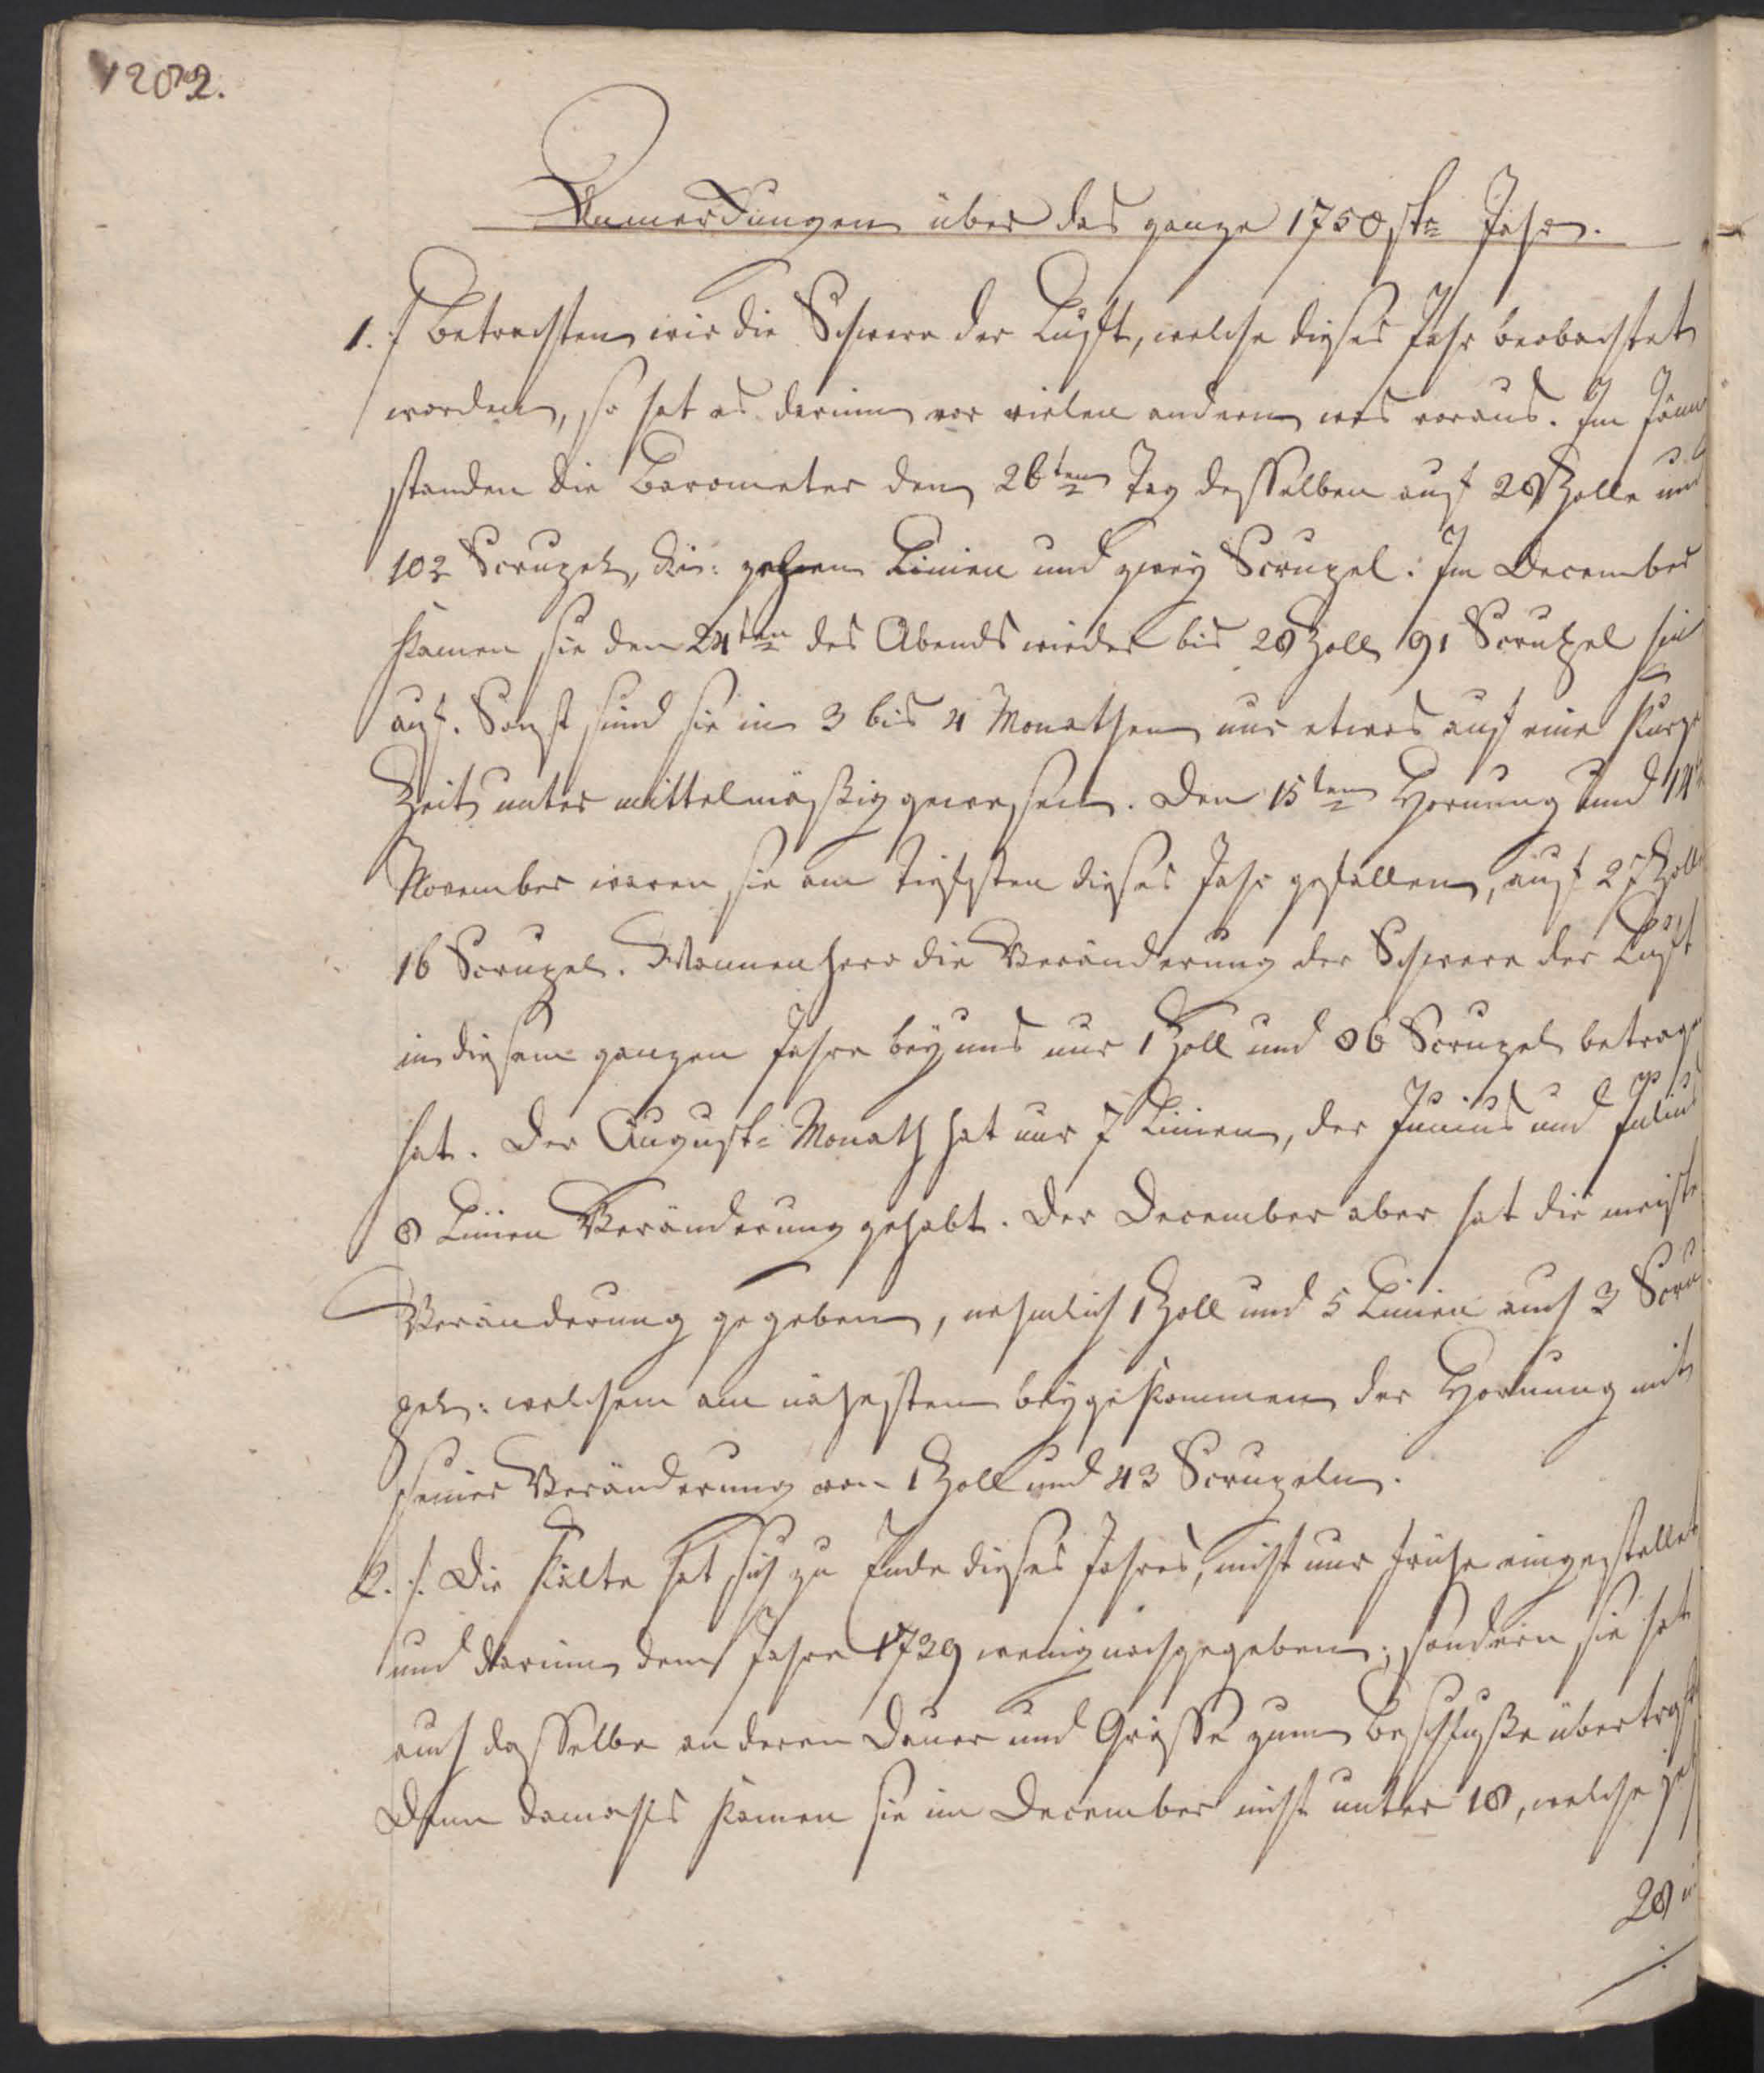 1282.
Anmerckungen über das ganze 1750ste Jahr.
1. / Betrachten wir die Schwere der Lufft, welche dieses Jahr beobachtet
worden, so hat es darinn vor vielen andern was voraus. Im Jänn
standen die Barometer den 26ten Tag desselben auf 28 Zolle und
102 Scrupel, die: zehen Linien und zwey Scrupel. Im December
kamen sie den 24ten des Abends wieder bis 28 Zoll 91 Scrupel hin
auf. Sonst sind sie in 3 bis 4 Monathen nur etwas auf eine kurze
Zeit unter mittelmäßig gewesen. Den 15ten Hornung und 14t
November waren sie am tiefsten dieses Jahr gefallen, auf 27 Zoll
16 Scrupel. Wannenhero die Veränderung der Schwere der Lufft
in diesem ganzen Jahre bey uns nur 1 Zoll und 86 Scrupel betrage
hat. Der August-Monath hat nur 7 Linien, der Junius und Julius
8 Linien Veränderung gehabt. Der December aber hat die meiste
Veränderung gegeben, nehmlich 1 Zoll und 5 Linien auch 3 Scru
pel: welchem am nähesten beygekommen der Hornung mit
seiner Veränderung von 1 Zoll und 43 Scrupeln.
2. /. Die Kälte hat sich zu Ende dieses Jahres, nicht nur frühe eingestellet
und darinn dem Jahre 1739 wenig nachgegeben; sondern sie hat
auch dasselbe an deren Dauer und Grösse zum Beschluße übertroff
Denn damahls kamen sie im December nicht unter 18, welche
28